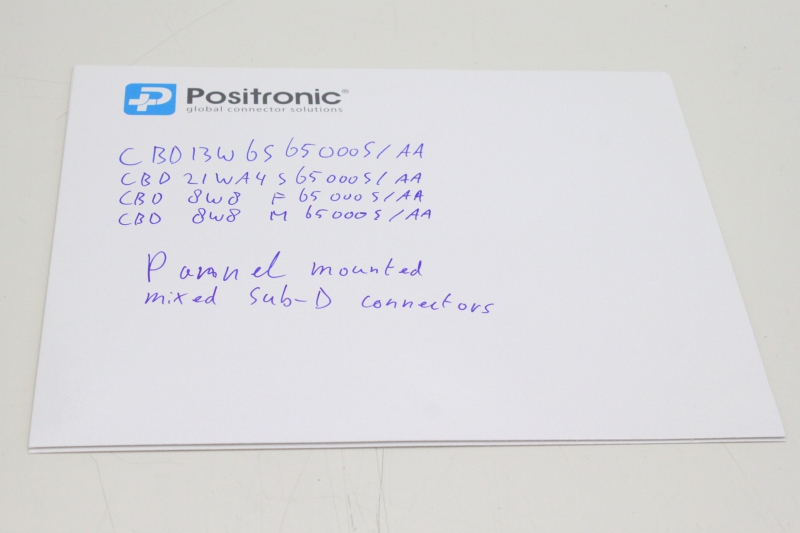 Positronic®
global connector solutions
CBD13W6S65000S/AA
CBD 21WA4 S 65000S/AA
CBD 8W8 F 65000S/AA
CBD 8W8 M 65000S/AA
Pannel mounted
mixed Sub-D connectors